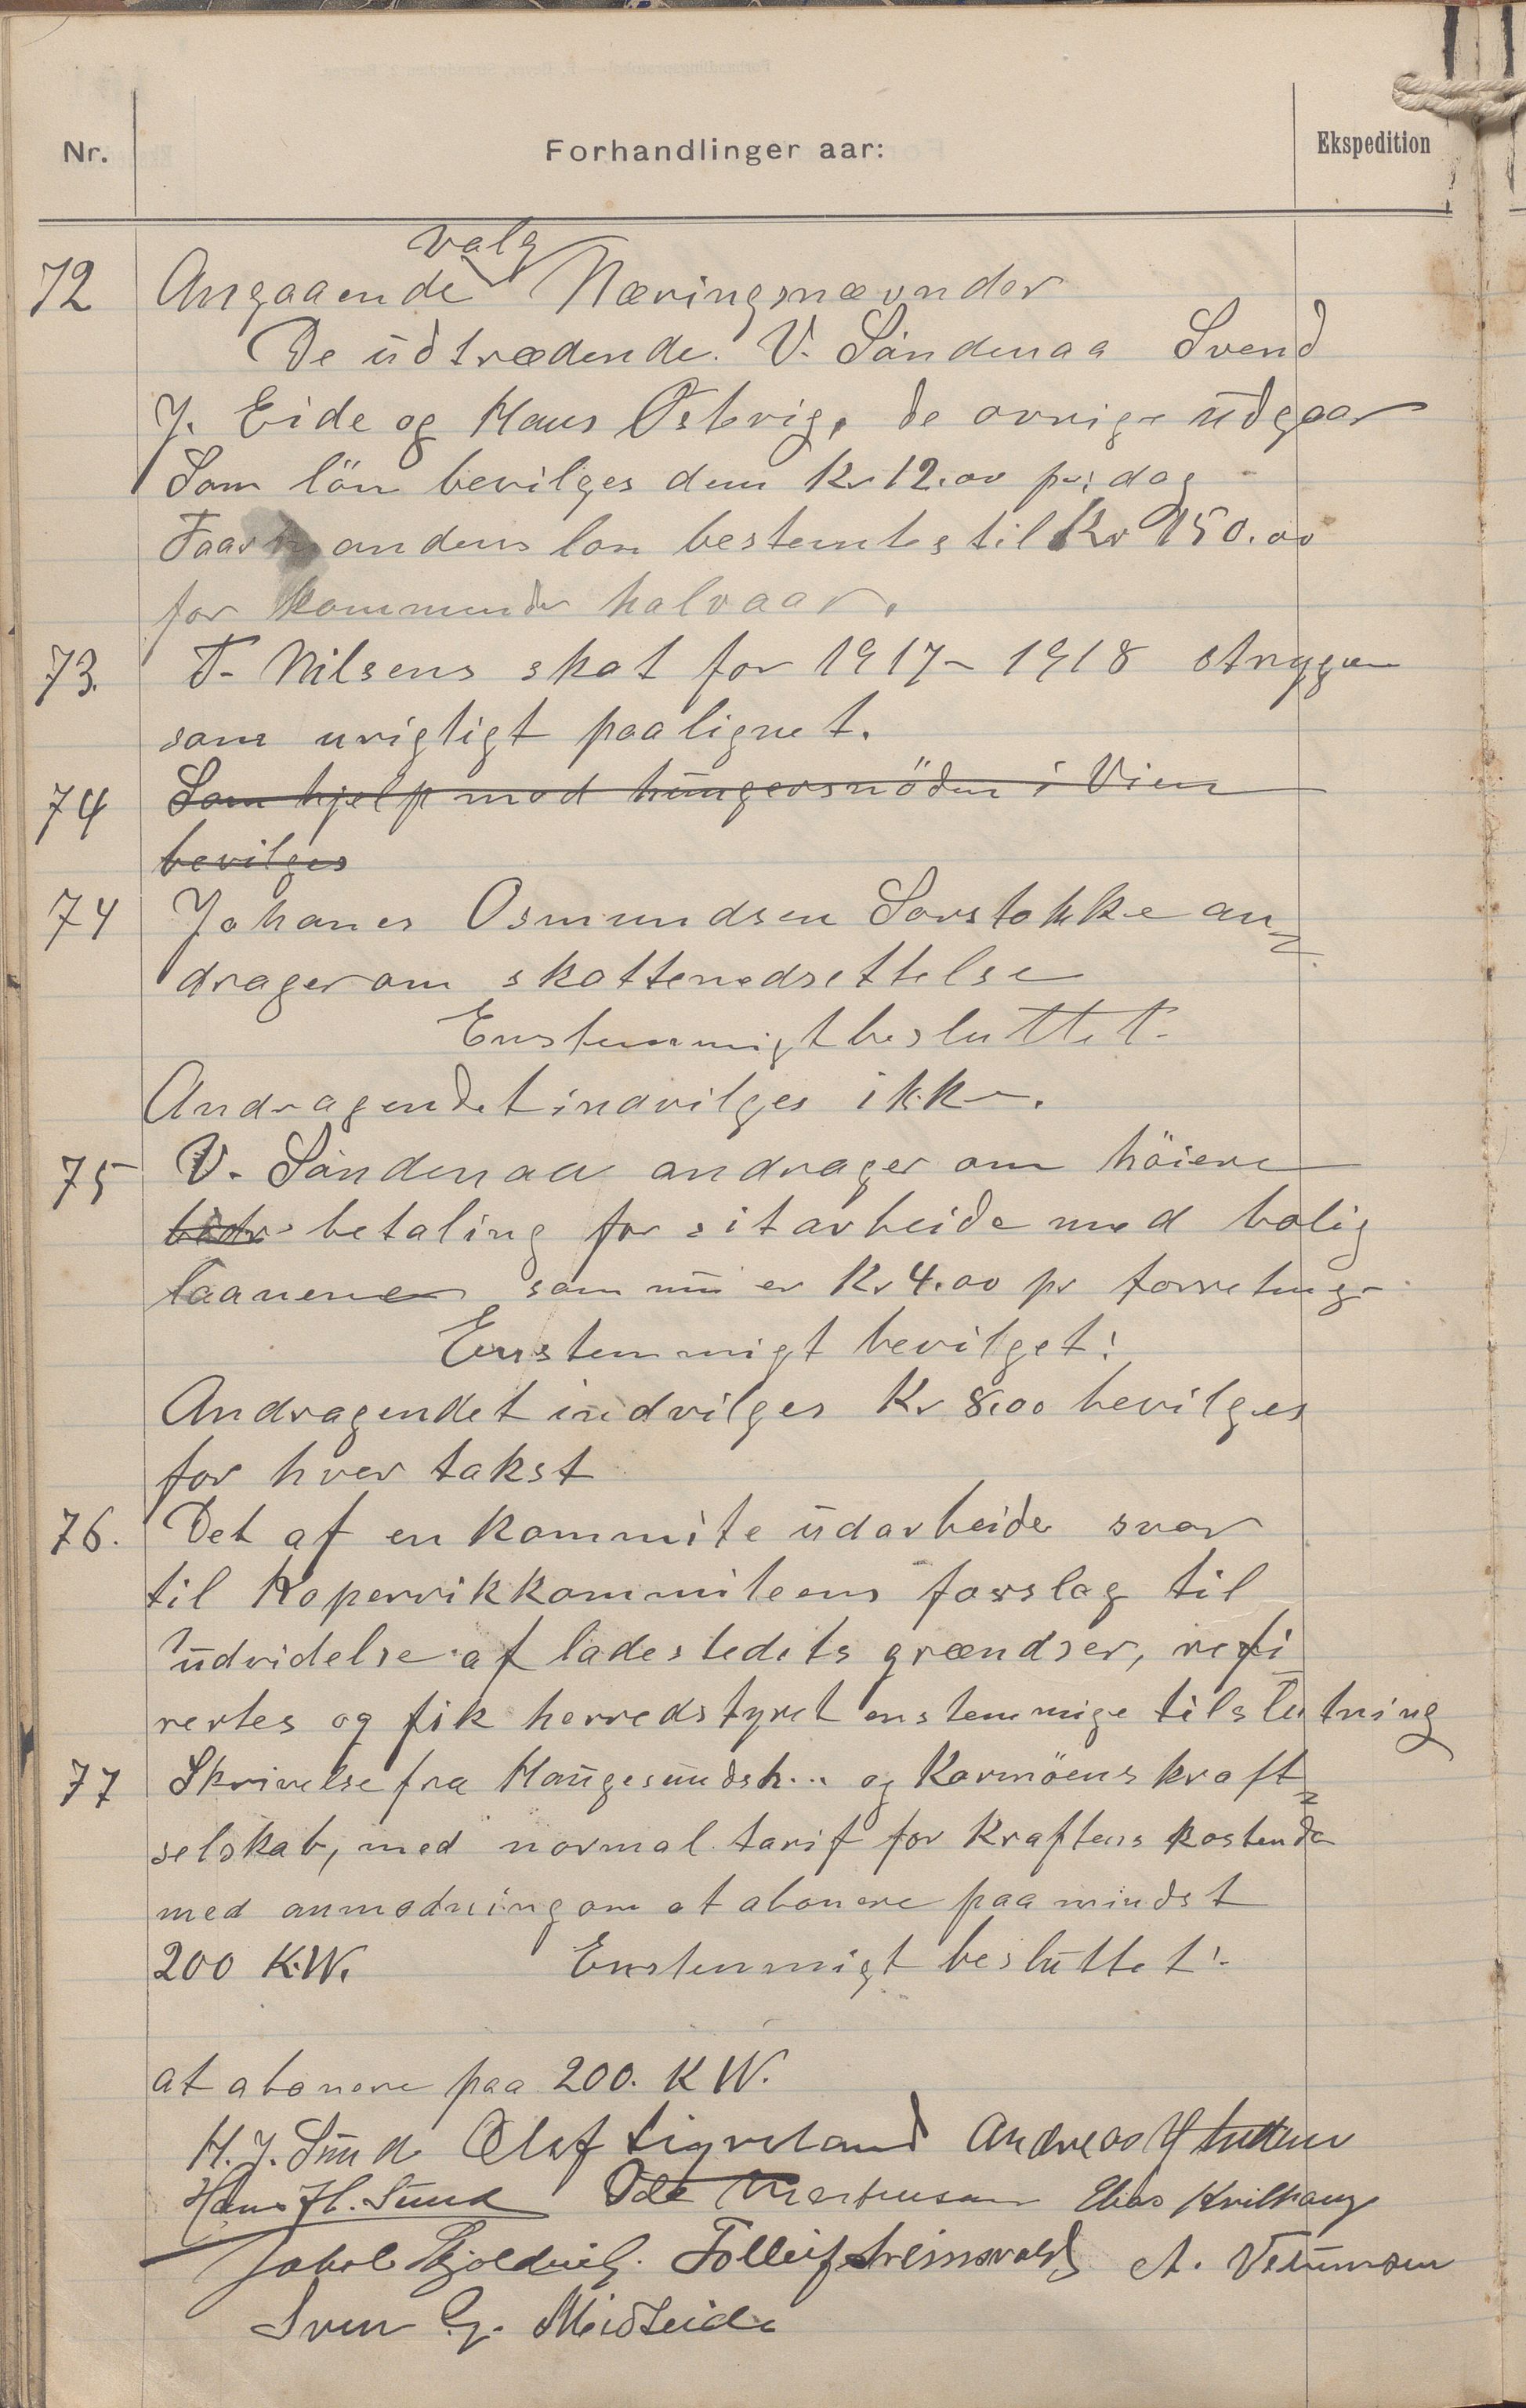 Nr.
Forhandlinger aar:
Ekspedition
valg
72 Angaaende Næringsnævnder
De udtrædende. V. Sandenaa Svend
J. Eide og Hans Østevig, de øvrige udgaar
Som lön bevilges dem Kr 12.00 pr: dag
Faarmandens løn bestemtes til Kr 150.00
for kommende halvaar.
73. T. Nilsens skat for 1917-1918 stryges
som urigtigt paalignet.
74 Som hjelp mod hungersnöden i Vien
bevilges
74 Johanes Osmundsen Sørstokke an=
drager om skattenedsettelse
Enstemmigt besluttet.
Andragendet indvilges ikke.
75 V. Sandenaa andrager om höiere
betaling for sit arbeide med bolig
laanene som nu er Kr 4.00 pr forretning
Enstemmigt bevilget:
Andragendet indvilges Kr 8.00 bevilges
for hver takst
76. Det af en kommite udarbeide svar
til Kopervikkommiteens forslag til
udvidelse af ladestedets grændser, refe
rertes og fik herredstyret enstemmige tilslutning
77 Skrivelse fra Haugesundsh... og Karmöens kraft=
selskab, med normal tarif for kraftens kostende
med anmodning om at abonere paa mindst
200 K.W. Enstemmigt besluttet:
at abonere paa 200. K W.
H. J. Sund Olaf Liknes Andreas
Hans H. Sund Ode Mortensen Elias Kvilhaug
Jakob Skjoldevig. Tolleif A. Vermundsen
Sven G. Midteide